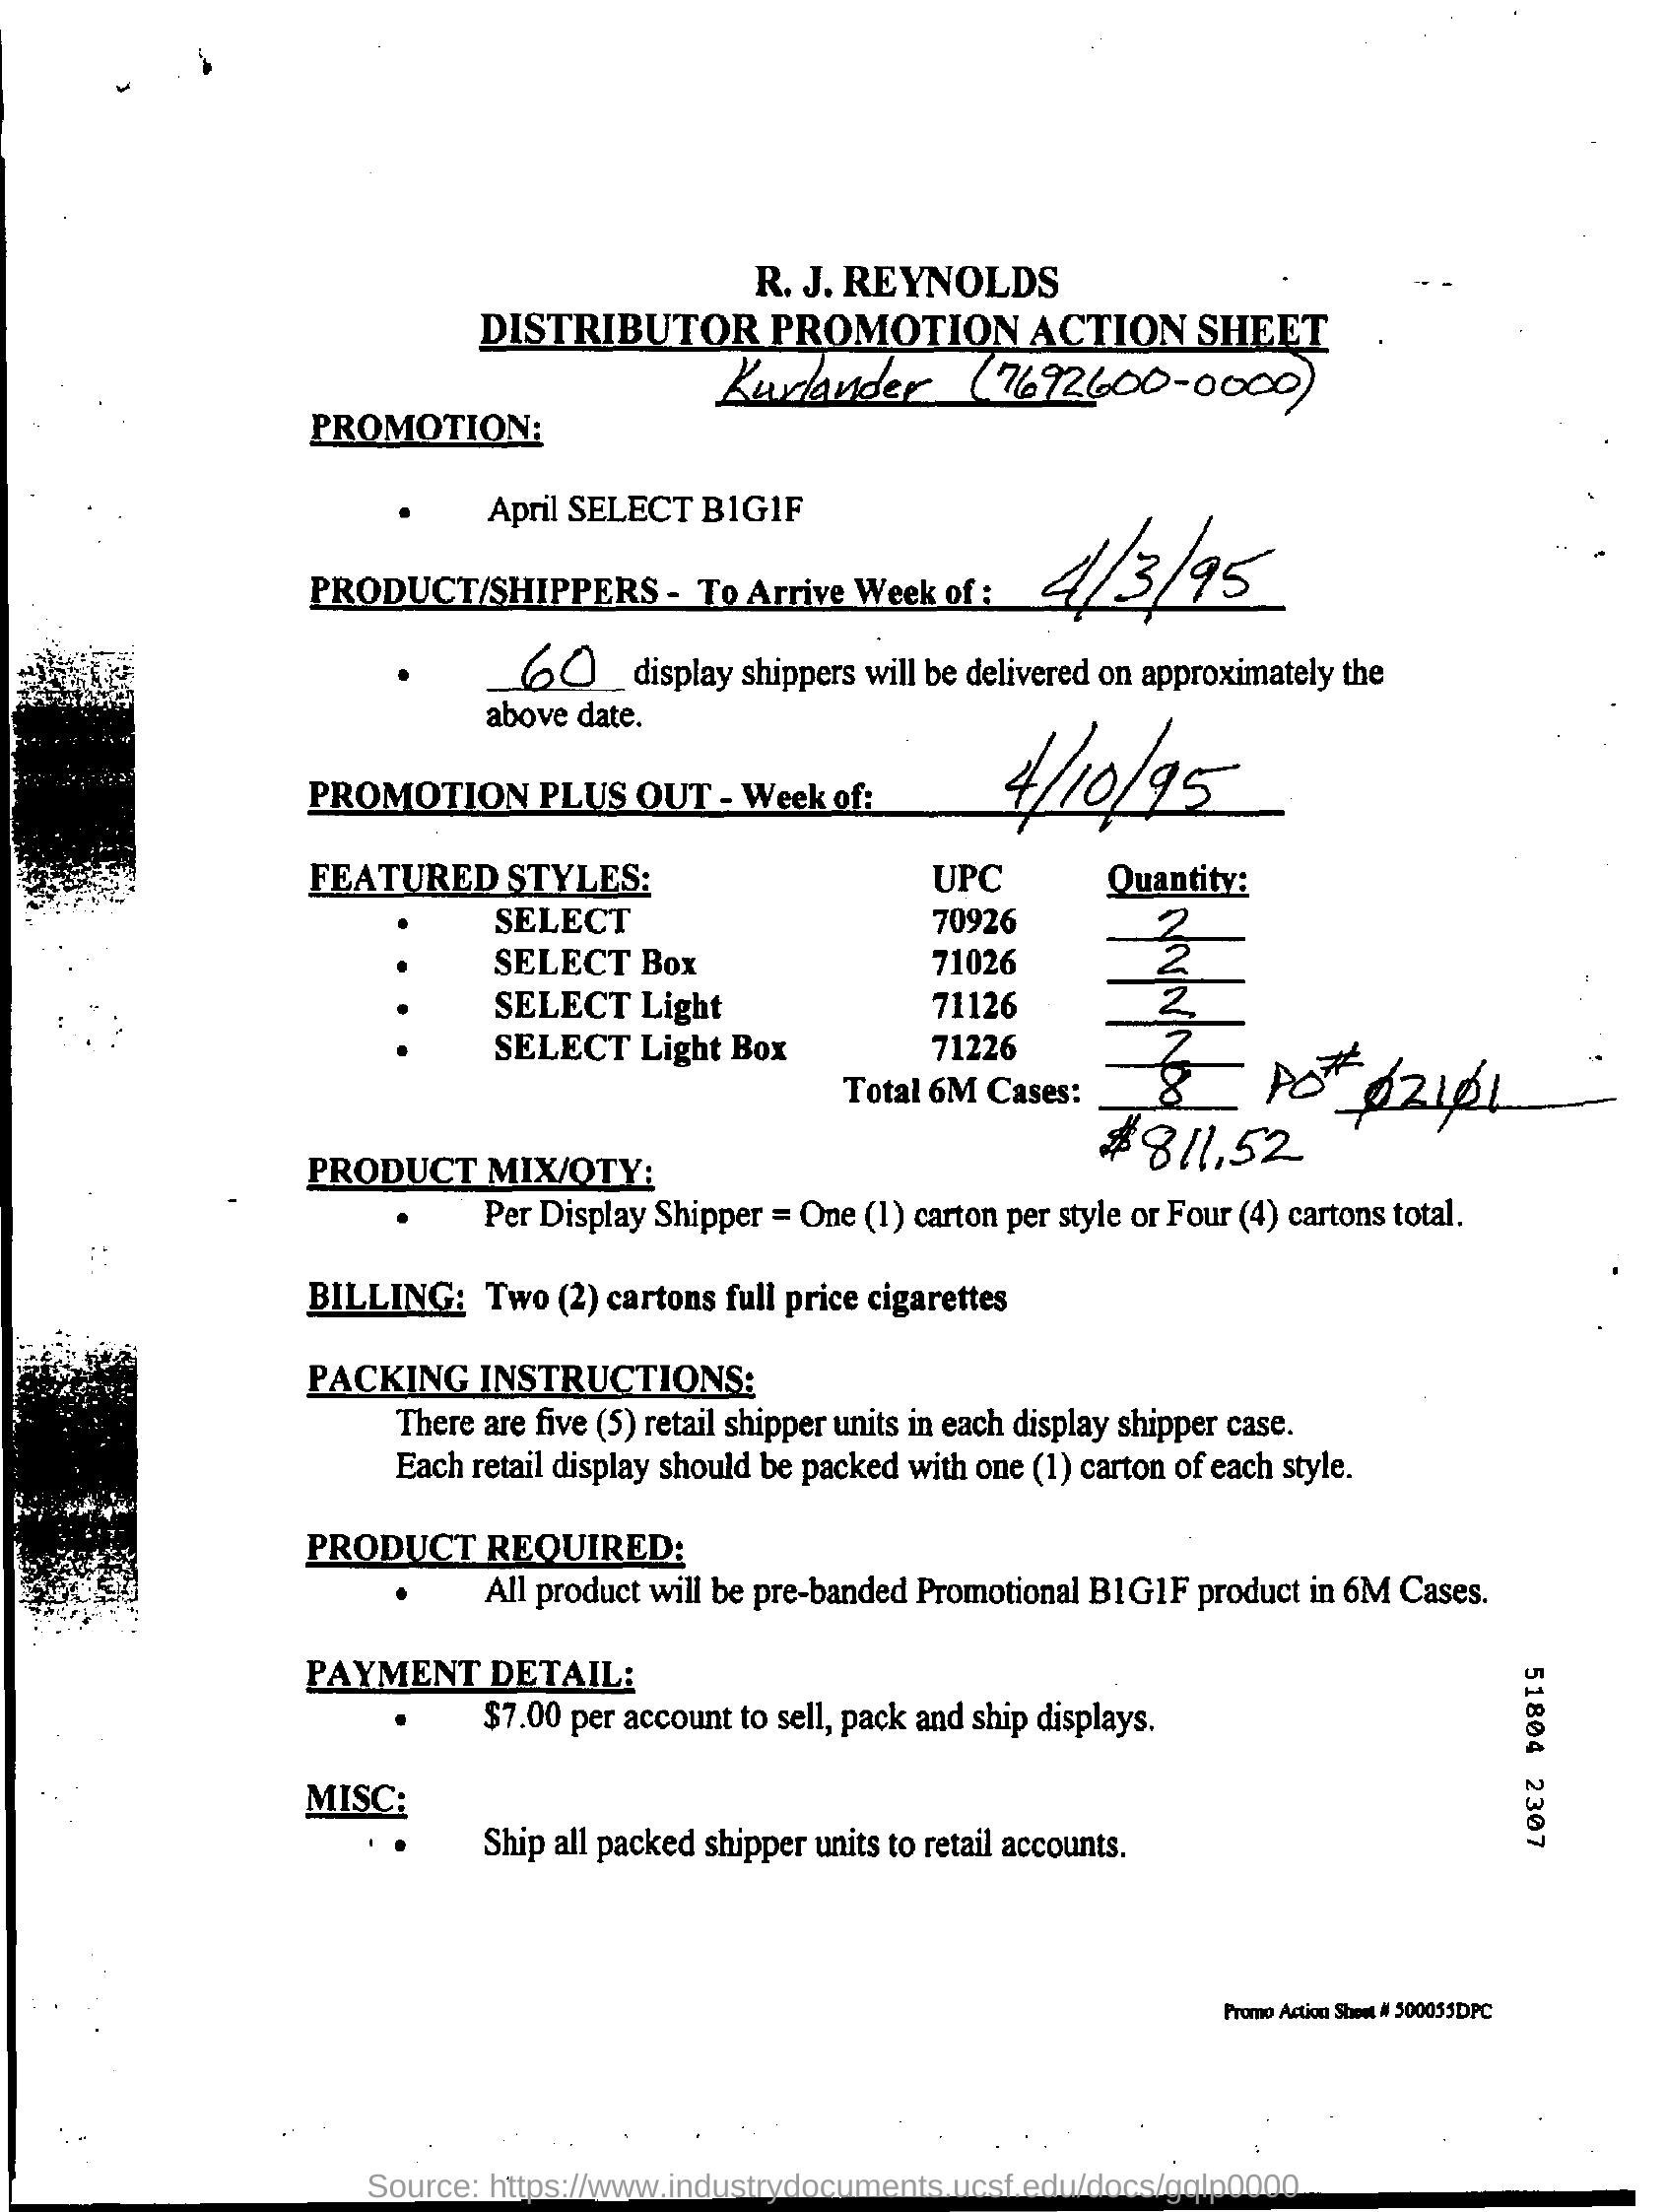 R. J. REYNOLDS
DISTRIBUTOR PROMOTION ACTION SHEET
Kurlander (7692600-0000)
PROMOTION:
• April SELECT B1G1F
PRODUCT/SHIPPERS - To Arrive Week of : 4/3/95
• 60 display shippers will be delivered on approximately the
above date.
PROMOTION PLUS OUT - Week of: 4/10/95
FEATURED STYLES: UPC Quantity:
• SELECT 70926 2
• SELECT Box 71026 2
• SELECT Light 71126 2
• SELECT Light Box 71226 2
Total 6M Cases: 8 PO# 02101
$811.52
PRODUCT MIX/QTY:
• Per Display Shipper = One (1) carton per style or Four (4) cartons total.
BILLING: Two (2) cartons full price cigarettes
PACKING INSTRUCTIONS:
There are five (5) retail shipper units in each display shipper case.
Each retail display should be packed with one (1) carton of each style.
PRODUCT REQUIRED:
• All product will be pre-banded Promotional B1G1F product in 6M Cases.
PAYMENT DETAIL:
• $7.00 per account to sell, pack and ship displays.
MISC:
• Ship all packed shipper units to retail accounts.
51804 2307
Promo Action Sheet # 500055DPC
Source: https://www.industrydocuments.ucsf.edu/docs/gqlp0000